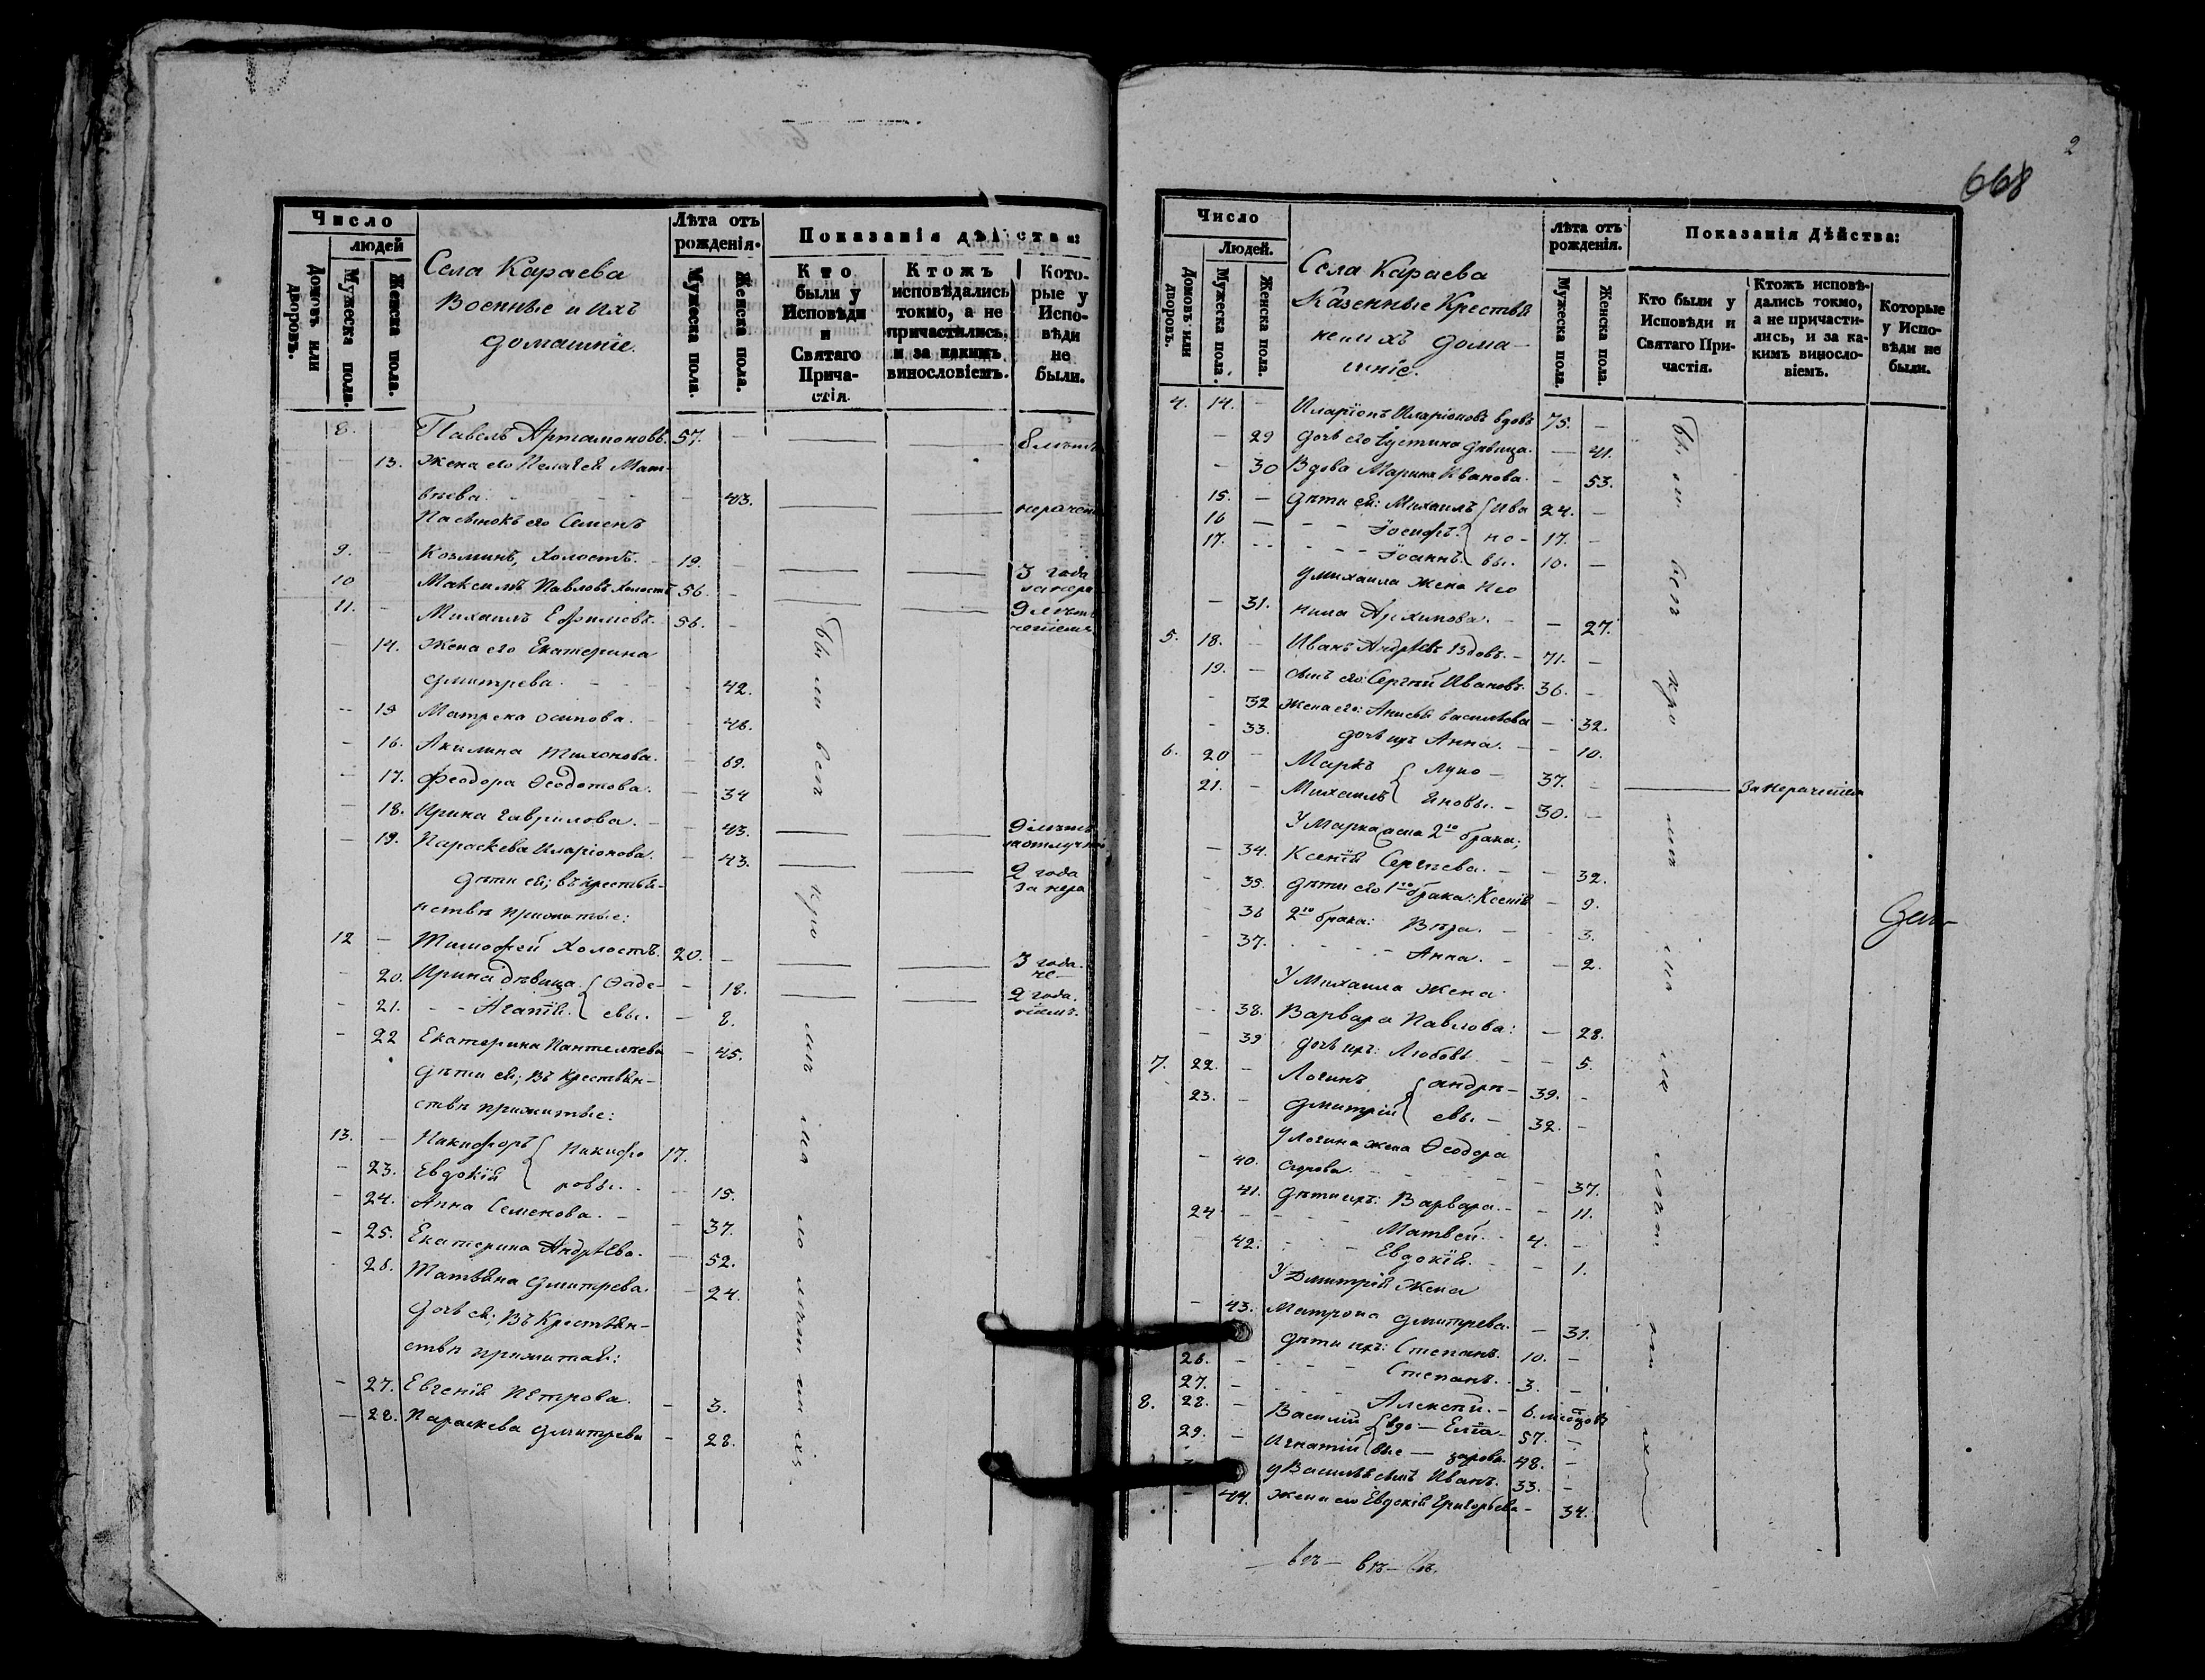 Число
людей
Домовъ или дворовъ.
Мужеска пола.
Женска пола.
Села Караева
Военные и ихъ
домашніе.
Лѣта отъ рожденія.
Мужеска пола.
Женска пола.
Показанія дѣйства:
Кто были у Исповѣди и Святаго Прича- стія.
Ктожъ исповѣдались токмо, а не причастились, и за какимъ винословіемъ.
Кото- рые у Испо- вѣди не были.
8. Павелъ Артамоновъ. 57. —
13. Жена его Пелагея Мат-
вѣева. - - - 43.
Пасынокъ его Семенъ
9. — Козминъ, холостъ. - 19. 3 года
10 Максимъ Павловъ холостъ 56. -
11. - Михаилъ Ефимовъ. 56. -
— 14. Жена его Екатерина
Дмитрева. - - - 42.
-- 15 Матрена Осипова. - 46.
- 16. Акилина Тихонова. - 69.
- 17. Феодора Ѳеодотова. - 34
- 18. Ирина Гаврилова. - - 43.
- 19. Параскева Иларіонова. - 43. 2 года
за нера
дѣти ея; въ крестья-
нствѣ прижитые:
12 — Тимофей холостъ. 20. - 3 года.
- 20. Ирина дѣвица. Ѳаде- - 18. 2 года.
- 21. - - Агапія. евы. - 8.
- 22 Екатерина Пантелеева - 45.
дѣти ея; въ крестьян-
ствѣ прижитые:
13. — Никифоръ Никифо 17.
- 23. Евдокія ровы. - - 15.
- 24. Анна Семенова. - - 37.
- 25. Екатерина Андреева. - 52.
- 26. Татьяна Дмитрева. - 24.
дочь ея; въ крестьян-
ствѣ прижитая:
- 27. Евгенія Петрова. - 3.
— 28. Параскева Дмитрева - 28.
2
668
Число
Людей.
Домовъ или дворовъ.
Мужеска пола.
Женска пола.
Села Караева
Казенные Крестья
не ихъ дома-
шніе.
Лѣта отъ рожденія.
Мужеска пола.
Женска пола.
Показанія Дѣйства:
Кто были у Исповѣди и Святаго При- частія.
Ктожъ исповѣ- дались токмо, а не причасти- лись, и за ка- кимъ виносло- віемъ.
Которые у Испо- вѣди не были.
4. 14. - Иларіонъ Иларіоновъ вдовъ 75. -
- 29 дочь его Іустина дѣвица. — 41.
- 30 Вдова Марина Иванова. - 53.
15. - дѣти ея: Михаилъ Ива 24. -
16 — - - Іосифъ. но- 17. -
17. - - - - Іоаннъ. вы. 10. -
у Михаила жена Нео
- 31. нила Архипова. - - 27.
5. 18. - Иванъ Андреевъ вдовъ. - 71. -
19. - сынъ его: Сергѣй Ивановъ. 36. -
- 32 Жена его: Анисья Васильева - 32.
- 33. дочь ихъ Анна. - - 10.
6. 20 - Маркъ Лупо- 37. -
21. - Михаилъ 30. - за нераченіем
У Марка 2го брака;
- 34. Ксенія Сергѣева. - - 32.
- 35. дѣти его 1го брака: Ксенія - 9.
- 36 2го брака: Вѣра. - - 3.
- 37. - - - - Анна. - - 2.
У Михаила жена
- 38. Варвара Павлова: - 28.
- 39 дочь ихъ: Любовь - - 5.
7. 22. - Логинъ Андрѣ- 39. -
23. - Дмитрій евы - 32. -
у Логина жена Ѳеодора
- 40. Егорова. - - - 37.
41. дѣти ихъ: Варвара. - - 11.
24 - - - Матвей. - 4. -
- 42. - - Евдокія. - - 1.
У Дмитрія Жена
- 43. Матрона Дмитрева. - 31.
дѣти ихъ: Степанъ. 10. -
26. - - - - Степанъ. 3. -
27. - Алексѣй. - 6. месецовъ
8. 28. - Василій вдо- 57. -
29. - Игнатій вые 48. -
у Василья сынъ Иванъ. 33. -
- 44. Жена его Евдокія Григорьева - 34.